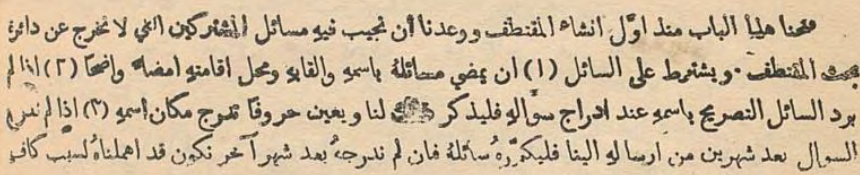 فتحنا هذا الباب منذ اوّل انشاء المقتطف ووعدنا ان نجيب فيه مسائل المشتركين التي لا تخرج عن دائرة
بحث المقتطف · ويشترط على السائل (١) ان يمضي مسائلهُ باسمهِ والقابهِ ومحل اقامتهِ امضاءً واضحاً (٢) اذا لم
يرد السائل التصريح باسمهِ عند ادراج سؤالهِ فليذكر ذلك لنا ويعين حروفاً تدرج مكان اسمهِ (٣) اذا لم ندرج
السؤال بعد شهرين من ارسالهِ الينا فليكرّرهُ سائلهُ فان لم ندرجهُ بعد شهر آخر نكون قد اهملناهُ لسبب كافٍ